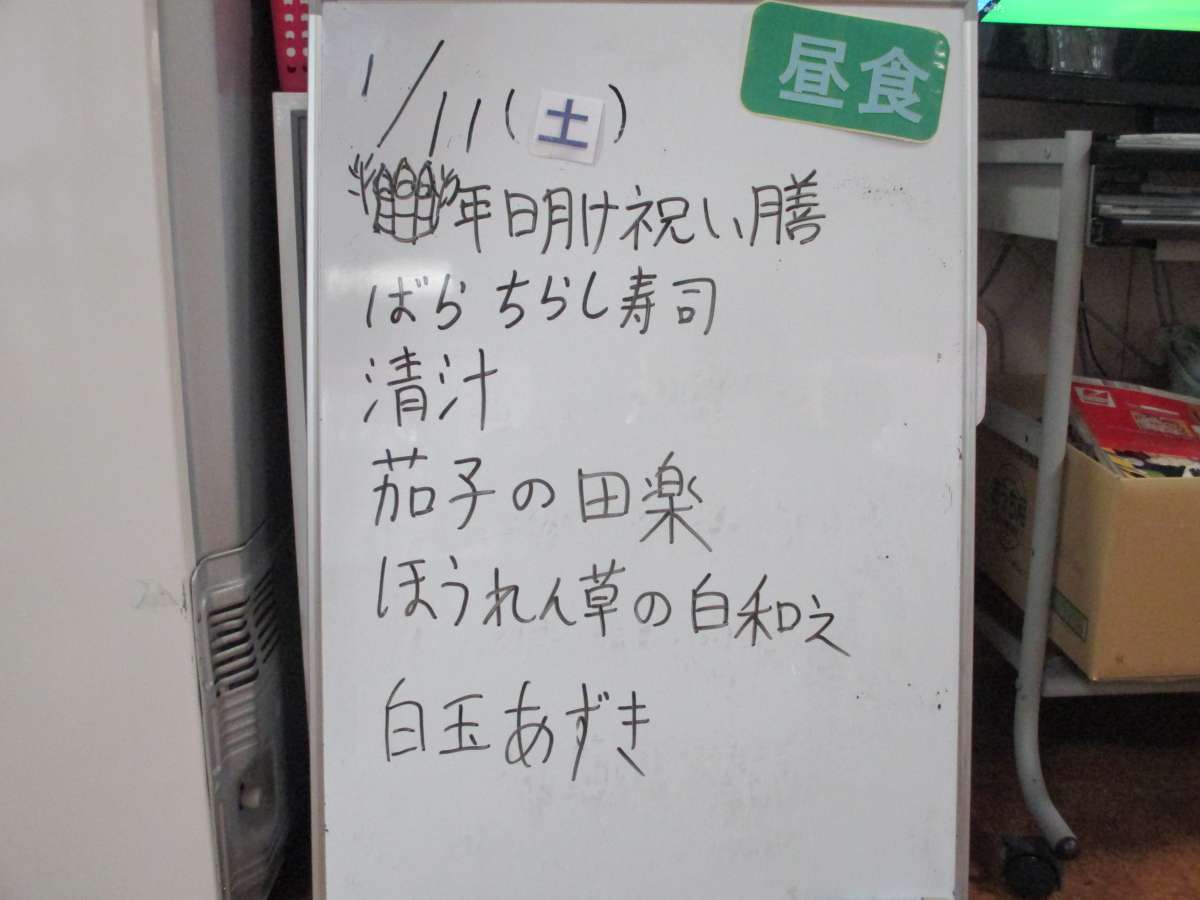 昼食
1/11(土)
年日明け祝い膳
ばらちらし寿司
清汁
茄子の田楽
ほうれん草の白和え
白玉あずき